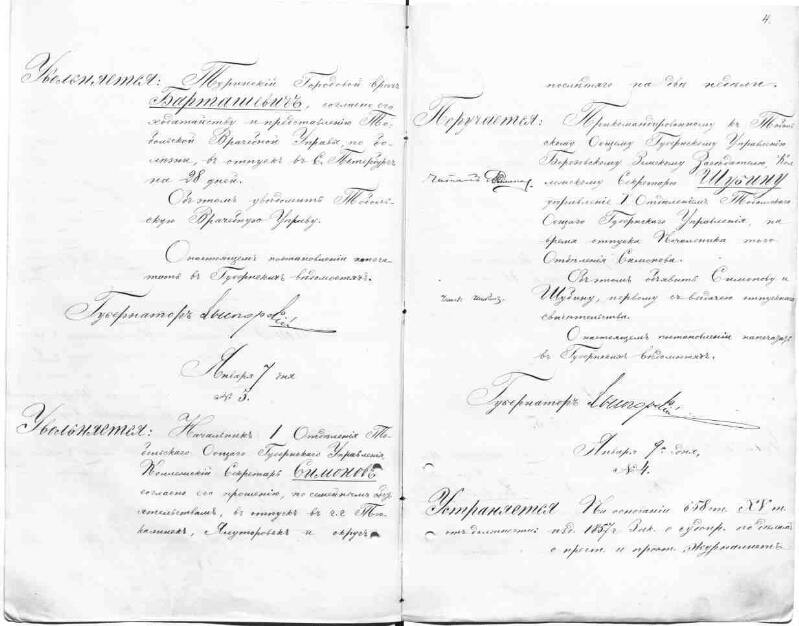 Увольняется: Туринскій Городовой врачъ
Барташевичъ, согласно его
ходатайству и представленію То-
больской Врачебной Управы, по бо-
лѣзни, въ отпускъ въ С. Петербургъ
на 28 дней.
Объ этомъ увѣдомить Тоболь-
скую Врачебную Управу.
О настоящемъ постановленіи напеча-
тать въ Губернскихъ вѣдомостяхъ.
Губернаторъ
Января 7 дня
№ 3.
Увольняется: Начальникъ I Отдѣленія То-
больскаго Общаго Губернскаго Управленія,
Коллежскій Секретарь Симоновъ
согласно его прошенію, по семейнымъ
въ отпускъ въ г.г.
Ялуторовскъ и округъ
4.
послѣдняго на двѣ недѣли.
Поручается: Прикомандированному къ Тоболь-
скому Общему Губернскому Управленію
Березовскому Земскому Засѣдателю, Кол-
лежскому Секретарю Шубину
управленіе I Отдѣленіемъ Тобольскаго
Общаго Губернскаго Управленія, на
время отпуска Начальника того
Отдѣленія Симонова.
Объ этомъ объявить Симонову и
Шубину, первому съ выдачею отпускнаго
свидѣтельства.
О настоящемъ постановленіи напечатать
въ Губернскихъ вѣдомостяхъ.
Губернаторъ
Января 9 дня,
№ 4.
Устраняется На основаніи 658 ст. XV т.
отъ должности: изд. 1857 г. Зак. о судопр. по дѣламъ
о прест. и прост.